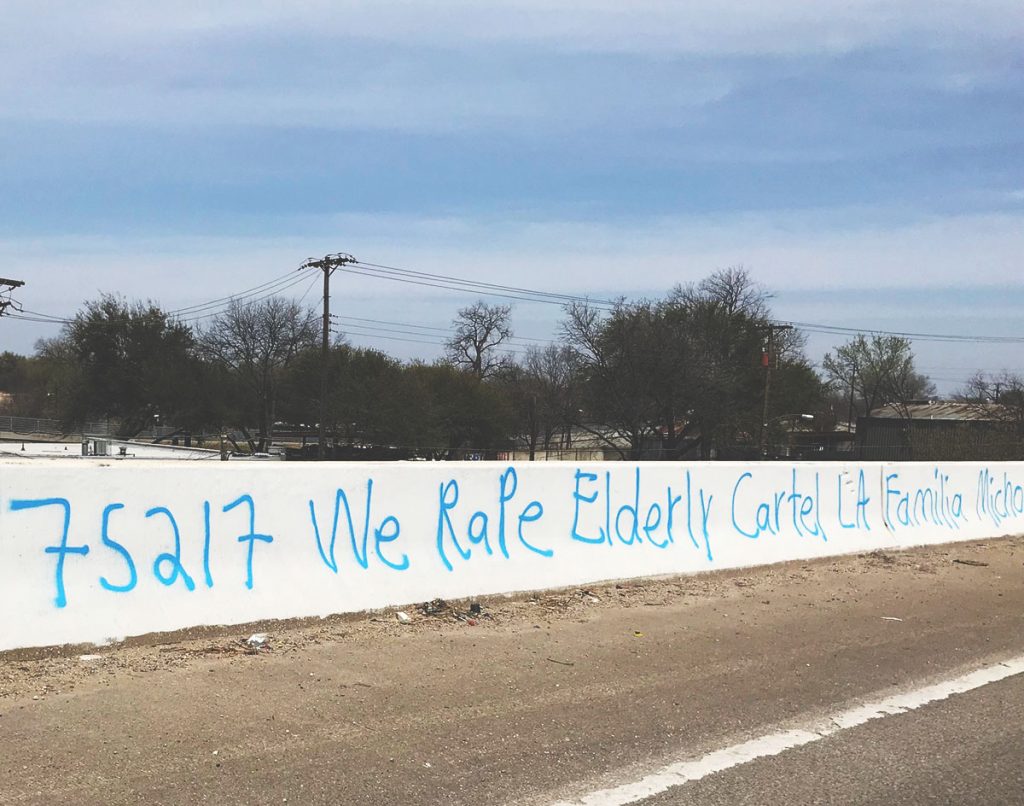 75217 We RaPe Elderly Cartel LA Familia Micho